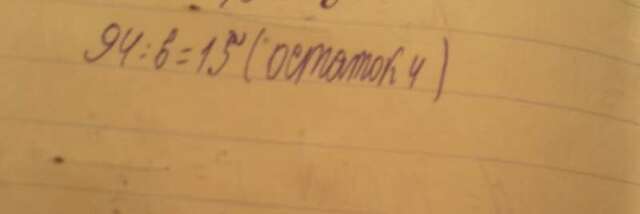 94:в=15(остаток 4)